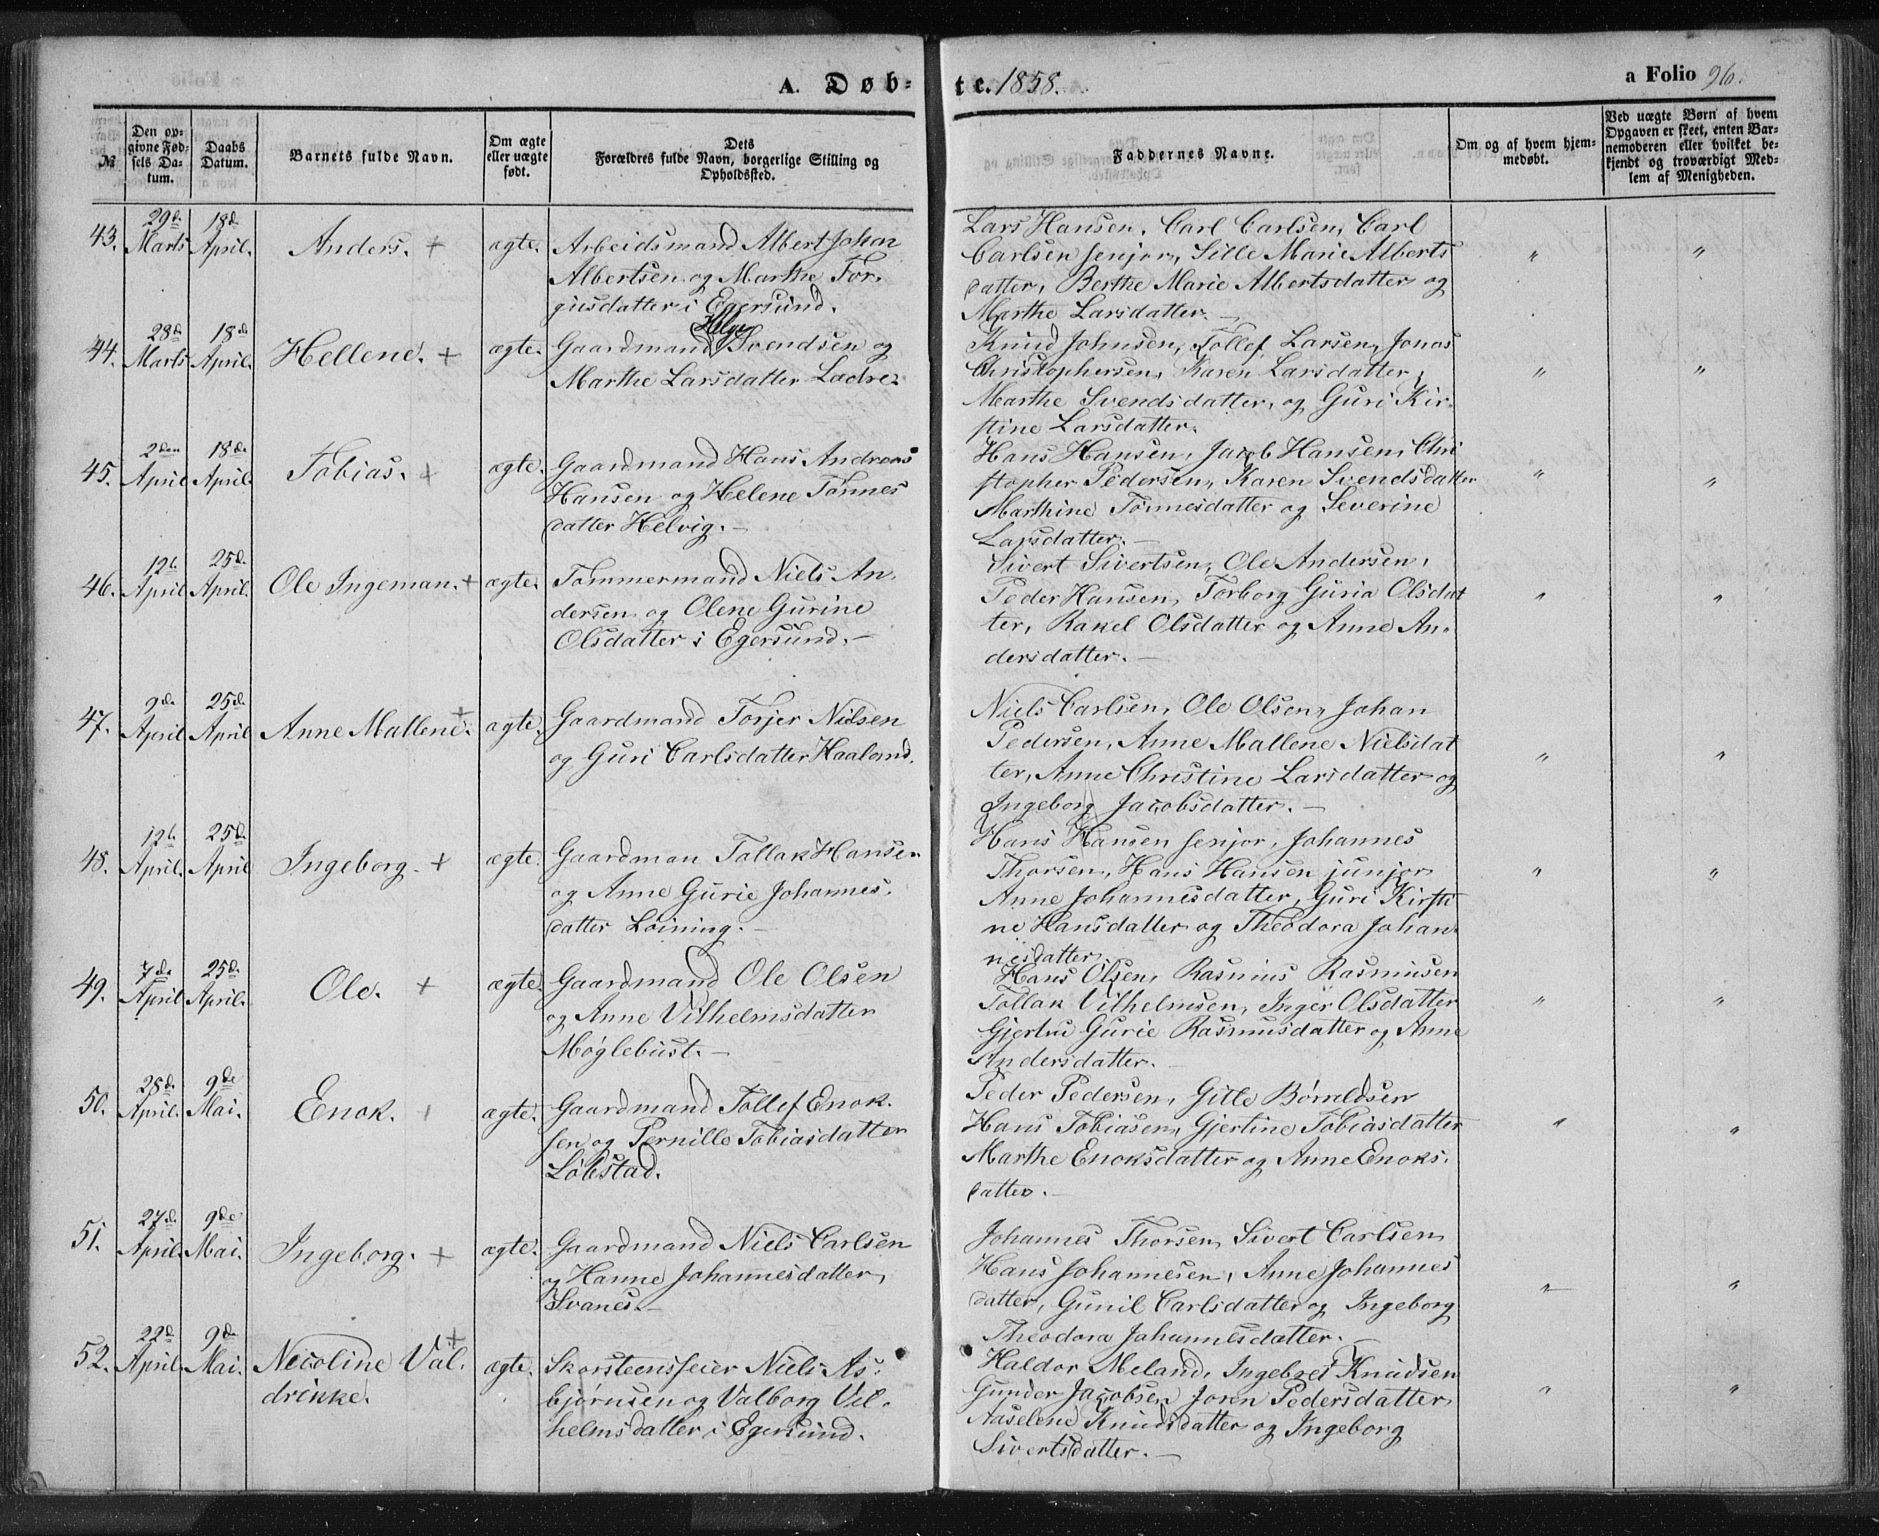 A. Døb-
te. 1858.
a Folio 96.
№
Den op-
givne Fød-
sels Da-
tum.
Daabs
Datum.
Barnets fulde Navn.
Om ægte
eller uægte
født.
Dets
Forældres fulde Navn, borgerlige Stilling og
Opholdssted.
Faddernes Navne.
Om og af hvem hjem-
medøbt.
Ved uægte Børn af hvem
Opgaven er skeet, enten Bar-
nemoderen eller hvilket be-
kjendt og troværdigt Med-
lem af Menigheden.
43.
29d.
Marts
18d.
April.
Anders. +
ægte.
Arbeidsmand Albert Johan
Albertsen og Marthe Tor-
giusdatter i Egersund.
Lars Hansen, Carl Carlsen, Carl
Carlsen senjor, Sille Marie Alberts
datter, Berthe Marie Albertsdatter og
Marthe Larsdatter. —
"
"
44.
28d.
Marts
18d.
April.
Hellene. +
ægte.
Helge
Gaardmand Svendsen og
Marthe Larsdatter Ladre.
Knud Johnsen, Tollef Larsen, Jonas
Christophersen, Karen Larsdatter,
Marthe Svendsdatter, og Guri Kir-
stine Larsdatter.
"
"
45.
2den
April
18de
April.
Tobias. +
ægte.
Gaardmand Hans Andreas
Hansen og Helene Tønnes
datter Helvig. —
Hans Hansen, Jacob Hansen, Chri
stopher Pedersen, Karen Svendsdatter
Marthine Tønnesdatter og Severine
Larsdatter. —
"
"
46.
12t.
April
25d.
April.
Ole Ingeman. +
ægte.
Tømmermand Niels An-
dersen og Olene Gurine
Olsdatter i Egersund. —
Sivert Sivertsen, Ole Andersen,
Peder Hansen, Torborg Guria Olsdat
ter, Rakel Olsdatter og Anne An-
dersdatter. —
"
"
47.
9de
April
25d.
April
Anne Mallene. +
ægte.
Gaardmand Torjer Nilsen
og Guri Carlsdatter Haaland.
Niels Carlsen, Ole Olsen, Johan
Pedersen, Anne Mallene Nielsdat
ter, Anne Christine Larsdatter og
Ingeborg Jacobsdatter. —
"
"
48.
12t.
April.
25d.
April
Ingeborg. +
ægte.
Gaardman Tollak Hansen
og Anne Gurie Johannes-
datter Løining. —
Hans Hansen senjor, Johannes
Thorsen, Hans Hansen junjor
Anne Johannesdatter, Guri Kirsti
ne Hansdatter og Theodora Johan-
nesdatter.
"
"
49.
7de
April
25d.
April.
Ole. +
ægte.
Gaardmand Ole Olsen
og Anne Vilhelmsdatter
Møglebust. —
Hans Olsen, Rasmus Rasmusen
Tollak Vilhelmsen, Inger Olsdatter
Gjertru Gurie Rasmusdatter og Anne
Andersdatter. —
"
"
50.
28d.
April.
9de
Mai.
Enok. +
ægte.
Gaardmand Tollef Enok-
sen og Pernille Tobiasdatter
Løbstad.
Peder Pedersen, Gitle Børildsen
Hans Tobiasen, Gjertine Tobiasdatter
Marthe Enoksdatter og Anne Enoks-
datter. —
"
"
51.
27d.
April.
9de
Mai.
Ingeborg. +
ægte.
Gaardmand Niels Carlsen
og Hanne Johannesdatter,
Svanes. —
Johannes Thorsen, Sivert Carlsen
Hans Johannesen, Anne Johannes
datter, Gunil Carlsdatter og Ingeborg
Theodora Johannesdatter. —
"
"
52.
22d
April.
9d.
Mai.
Nicoline Val- +
drikke.
ægte.
Skorsteensfeier Niels As-
bjørnsen og Valborg Vil-
helmsdatter i Egersund.
Haldor Meland, Ingebret Knudsen
Gunder Jacobsen, Joren Pedersdatter,
Aaselene Knudsdatter og Ingeborg
Sivertsdatter. —
"
"